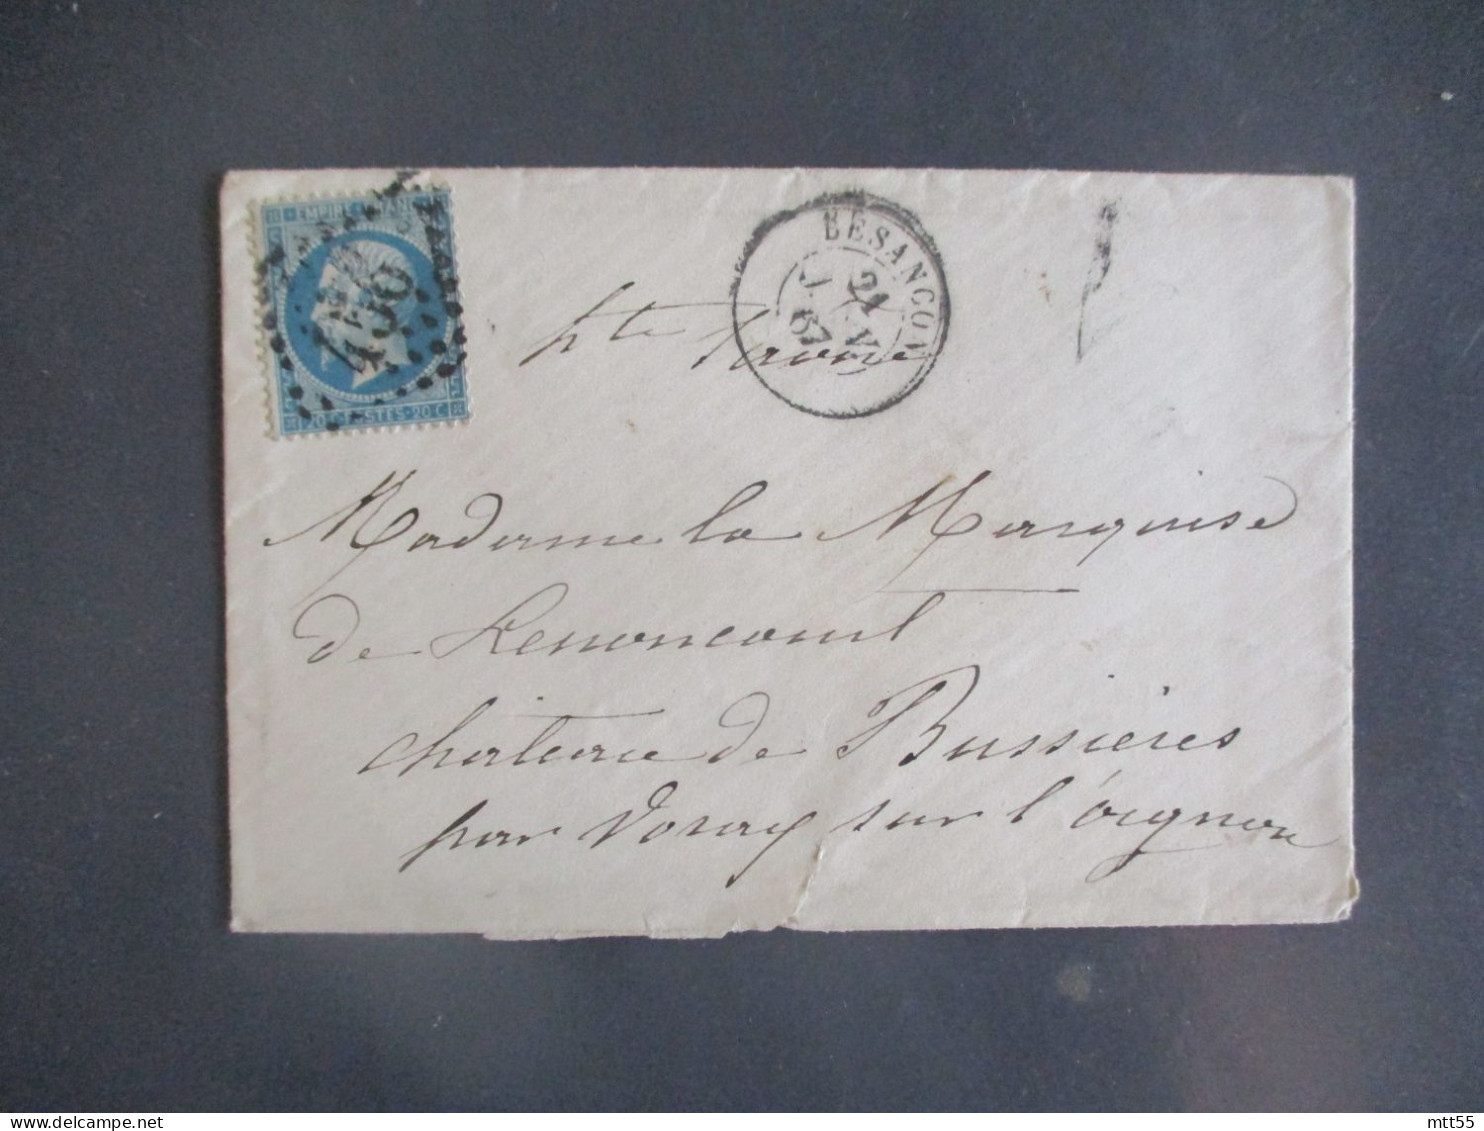 EMPIRE FRANC
436
20 C POSTES 20 C
BESANCON
21
JANV
67
hte Saône
Madame la Marquise
de Lenoncourt
chateau de Bussieres
par Voray sur l'oignon
mtt55